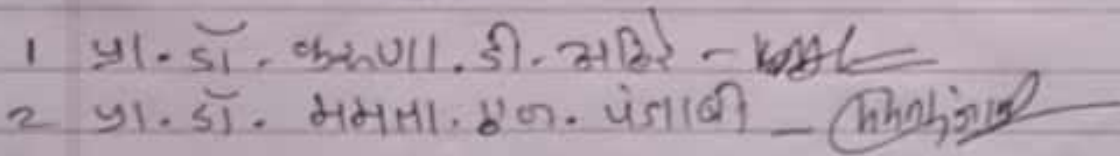 1 પ્રા. ડૉ. કરુણા. ડી. અહિરે -
2 પ્રા. ડૉ. મમતા. એન. પંજાબી -